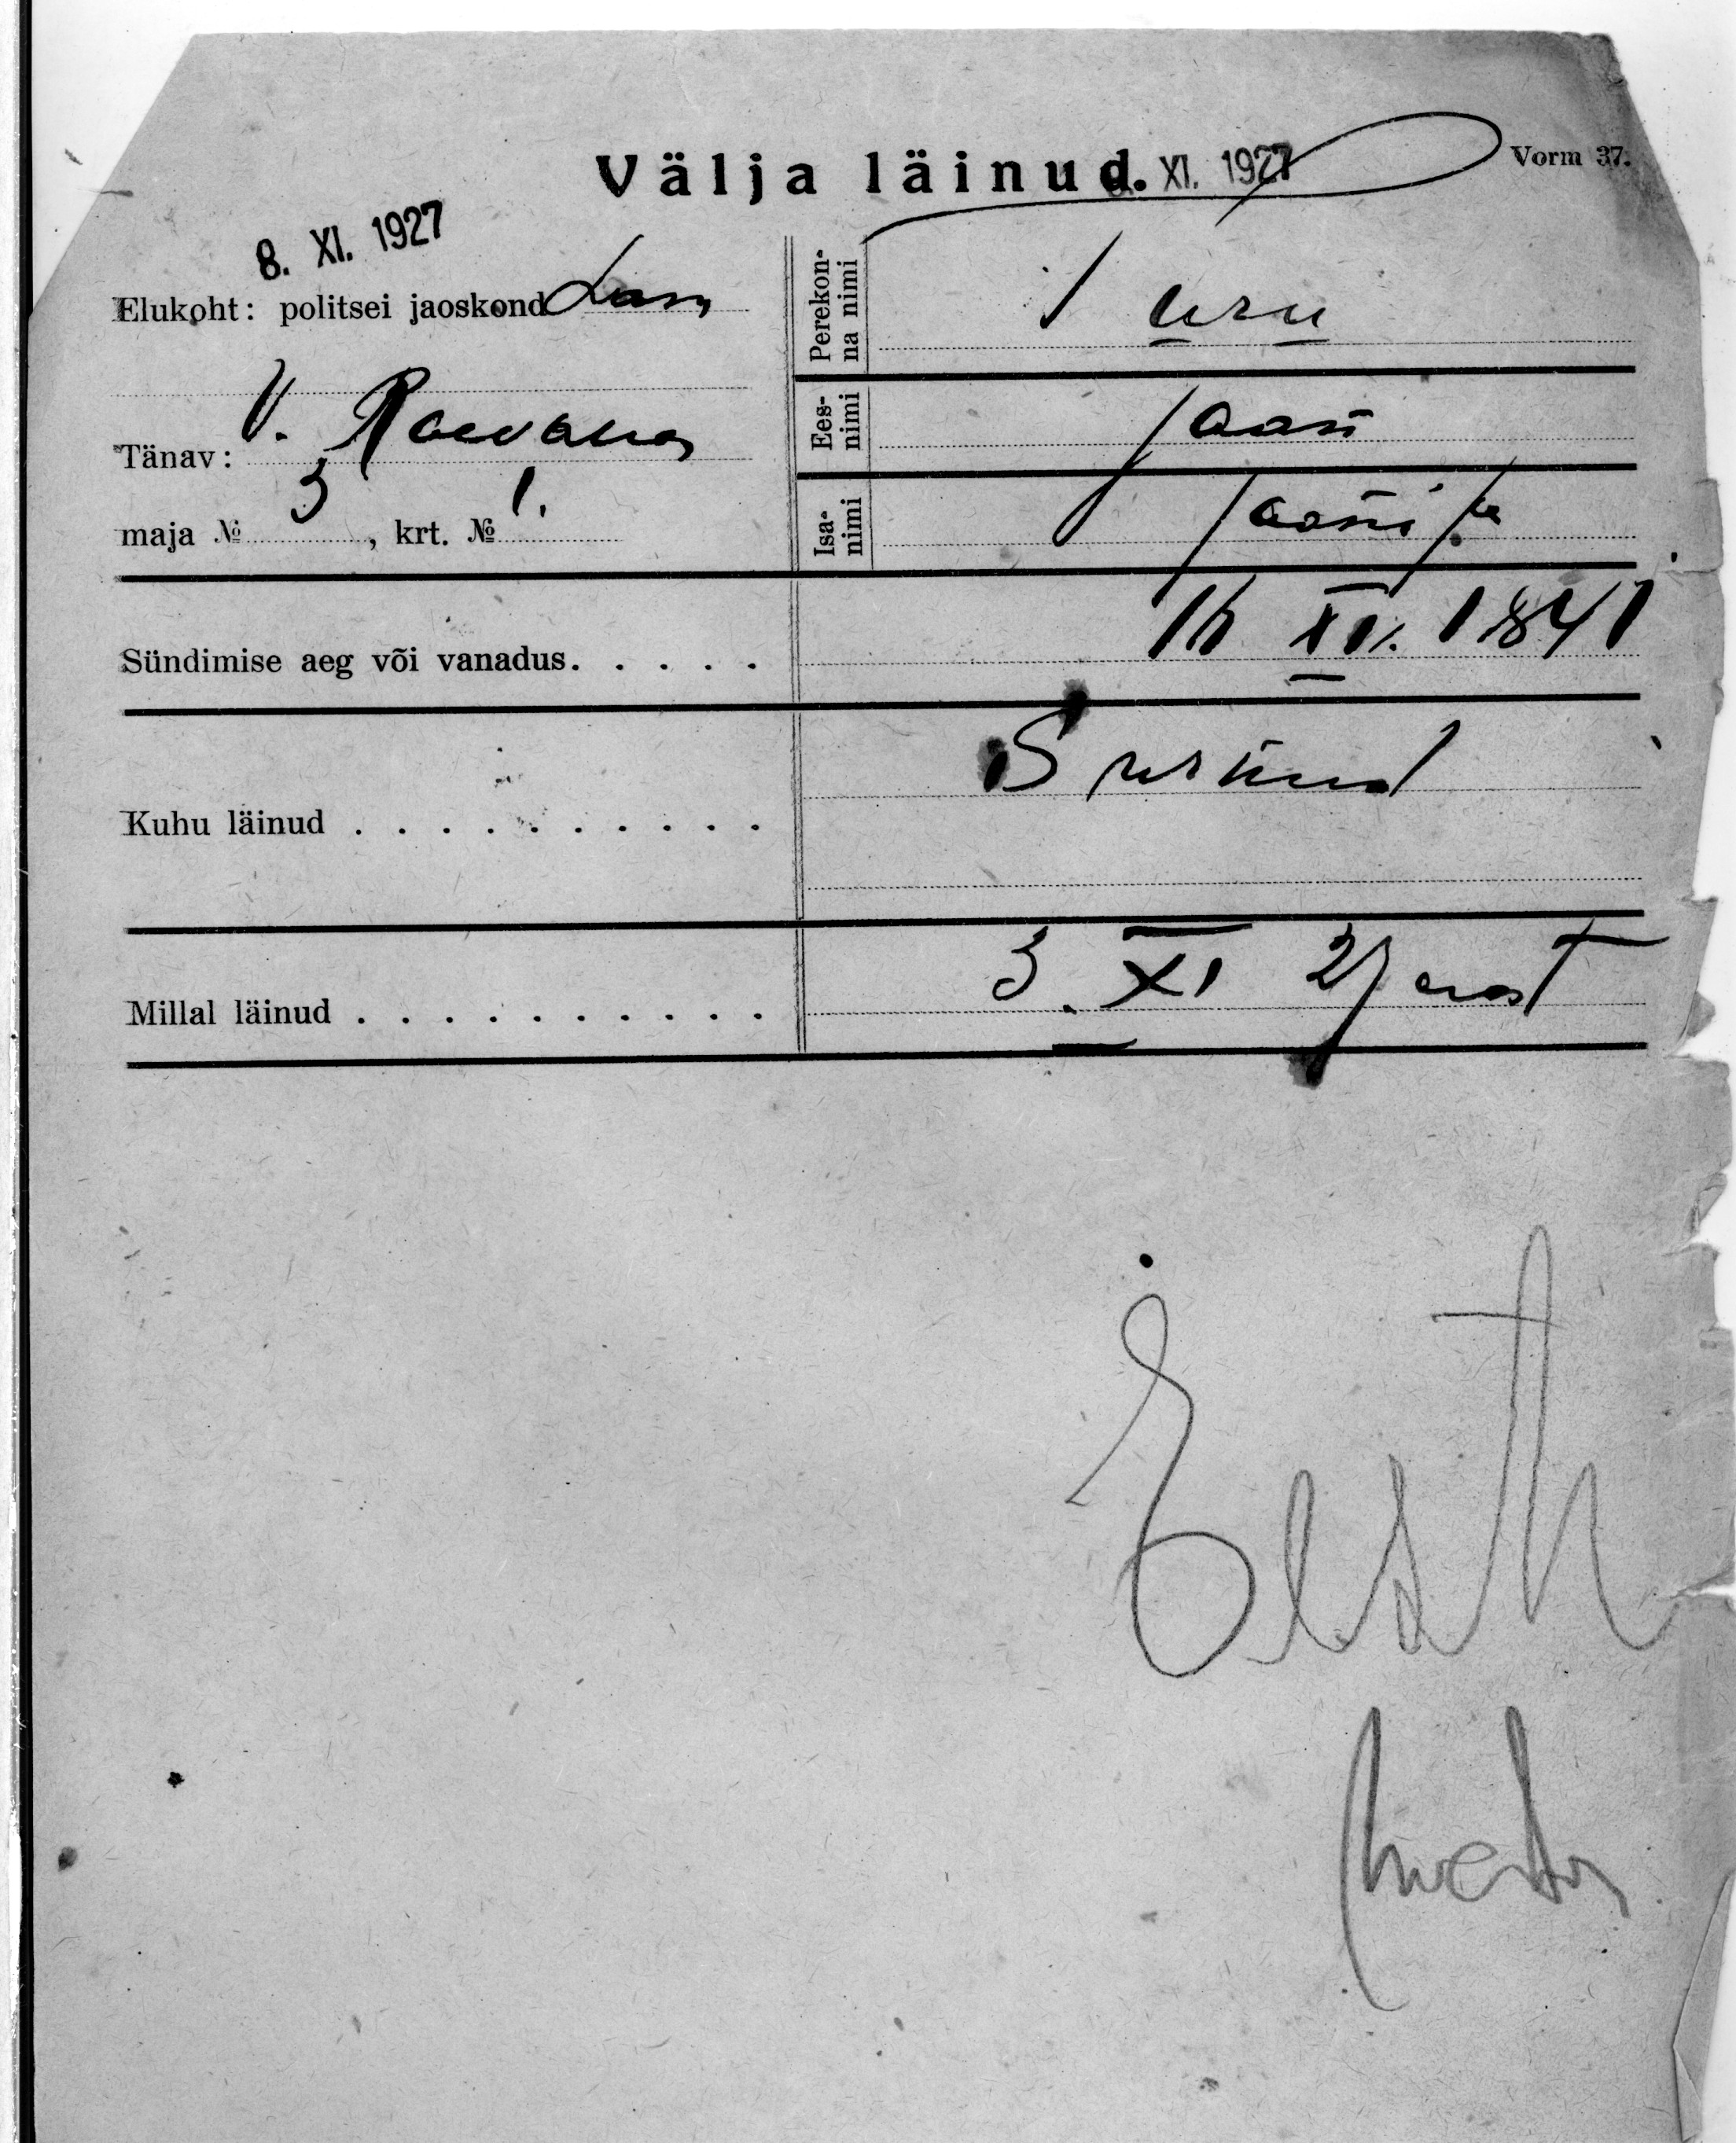 Välja läinud. XI. 1927 Vorm 37.
8. XI. 1927
Elukoht: politsei jaoskond
Tänav: V.
maja № 3, krt. № 1.
Perekonna nimi Turu
Eesnimi Jaan
Isanimi Jaani p.
Sündimise aeg või vanadus. . . . . XII. 1841
Kuhu läinud . . . . . . . . . . Surnud
Millal läinud . . . . . . . . . . 3. XI 27 aast
Eesti